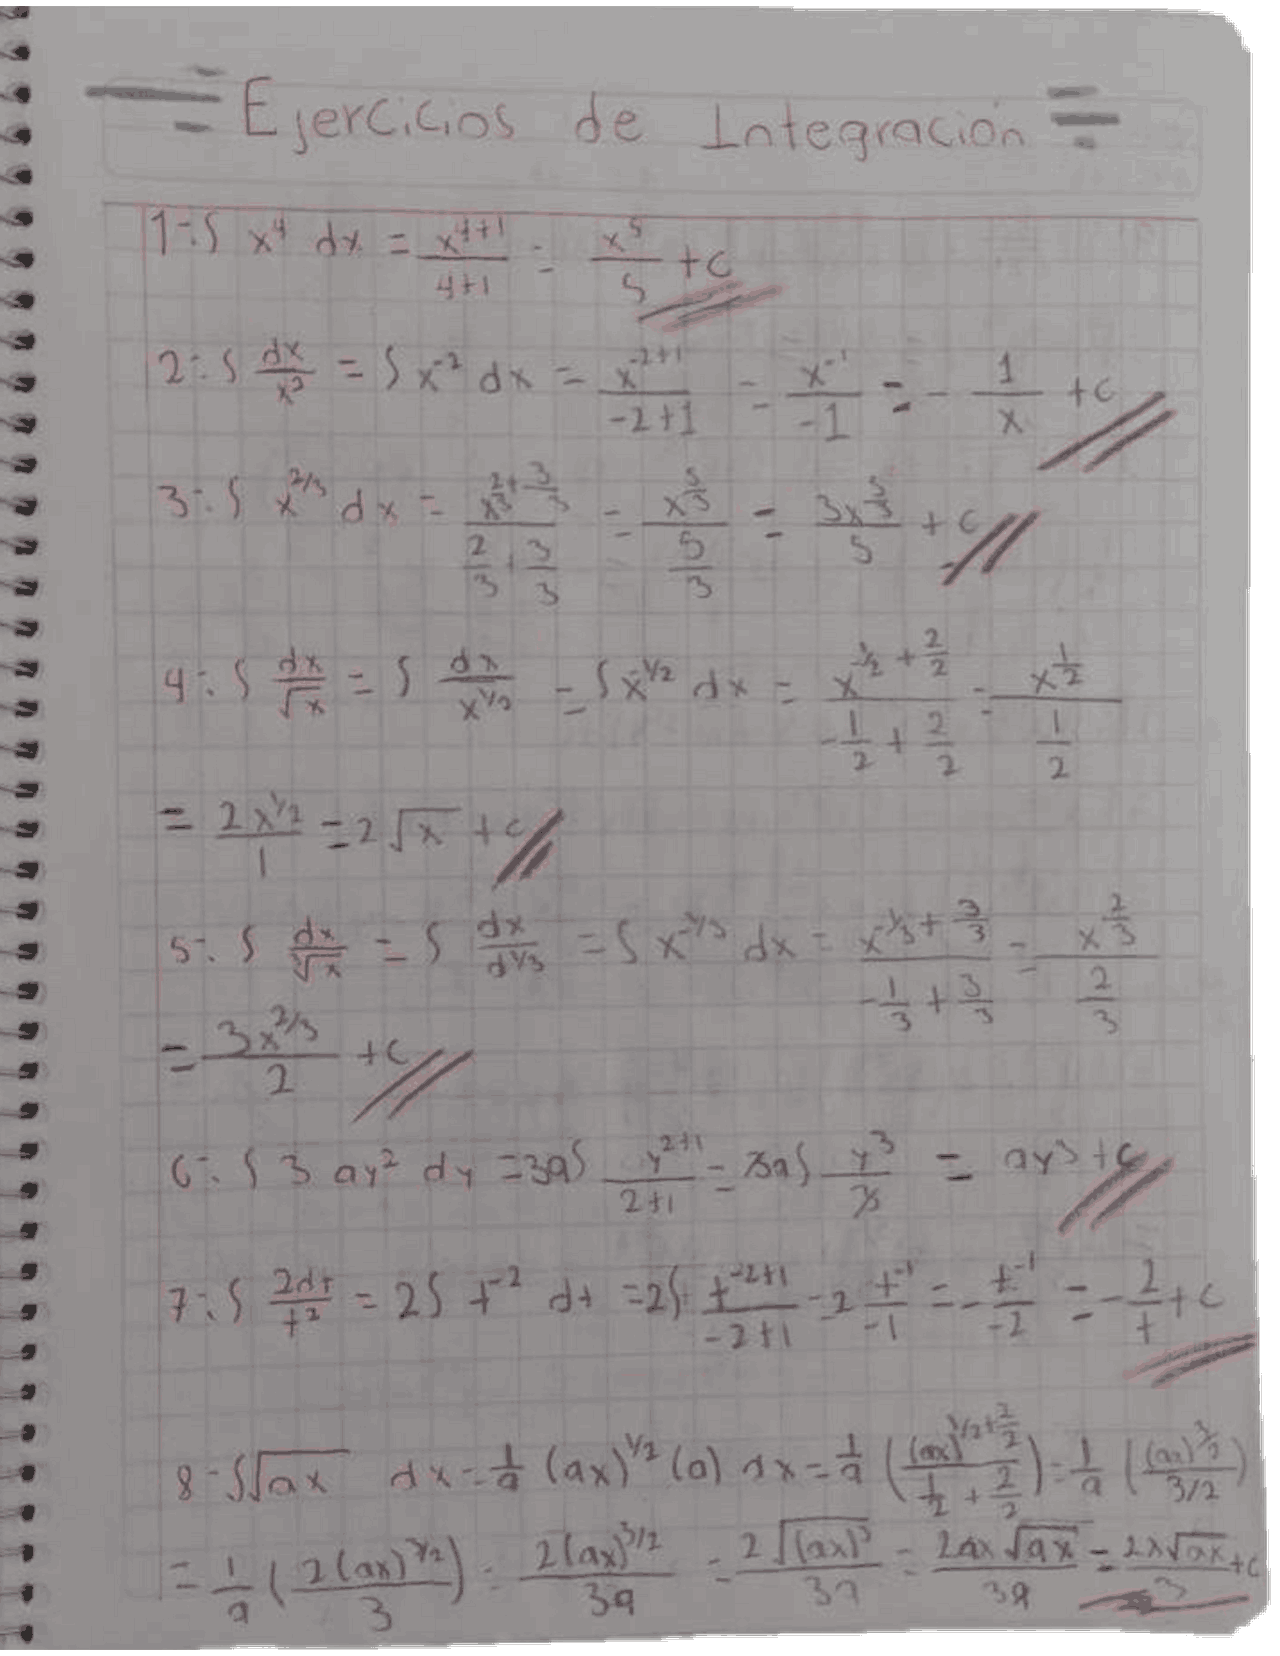 Ejercicios de Integración
1-. ∫ x⁴ dx = x^(4+1)/(4+1) = x⁵/5 + c
2-. ∫ dx/x² = ∫ x⁻² dx = x^(-2+1)/(-2+1) = x⁻¹/-1 = - 1/x + c
3-. ∫ x^(2/3) dx = x^(2/3 + 3/3)/(2/3 + 3/3) = x^(5/3)/(5/3) = 3x^(5/3)/5 + c
4-. ∫ dx/√x = ∫ dx/x^(1/2) = ∫ x^(-1/2) dx = x^(-1/2 + 2/2)/(-1/2 + 2/2) = x^(1/2)/(1/2)
= 2x^(1/2)/1 = 2√x + c
5-. ∫ dx/∛x = ∫ dx/d^(1/3) = ∫ x^(-1/3) dx = x^(-1/3 + 3/3)/(-1/3 + 3/3) = x^(2/3)/(2/3)
= 3x^(2/3)/2 + c
6-. ∫ 3 ay² dy = 3a∫ y^(2+1)/(2+1) = 3a∫ y³/3 = ay³ + c
7-. ∫ 2dt/t² = 2∫ t⁻² dt = 2∫ t^(-2+1)/(-2+1) = 2 t⁻¹/-1 = - t⁻¹/-2 = - 2/t + c
8-. ∫√ax dx = 1/a (ax)^(1/2) (a) dx = 1/a ((ax)^(1/2 + 2/2)/(1/2 + 2/2)) = 1/a ((ax)^(3/2)/(3/2))
= 1/a (2(ax)^(3/2)/3) = 2(ax)^(3/2)/3a = 2√(ax)³/3a = 2ax√ax/3a = 2x√ax/3 + c